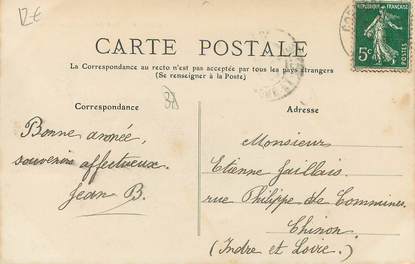 12€
RÉPUBLIQUE FRANÇAISE
5c
CARTE POSTALE
La Correspondance au recto n'est pas acceptée par tous les pays étrangers
(Se renseigner à la Poste)
Correspondance
37
Adresse
Bonne année,
souvenir affectueux.
Jean B.
Monsieur
Etienne Jaillais.
rue Philippe de Commines.
Chinon.
(Indre et Loire.)